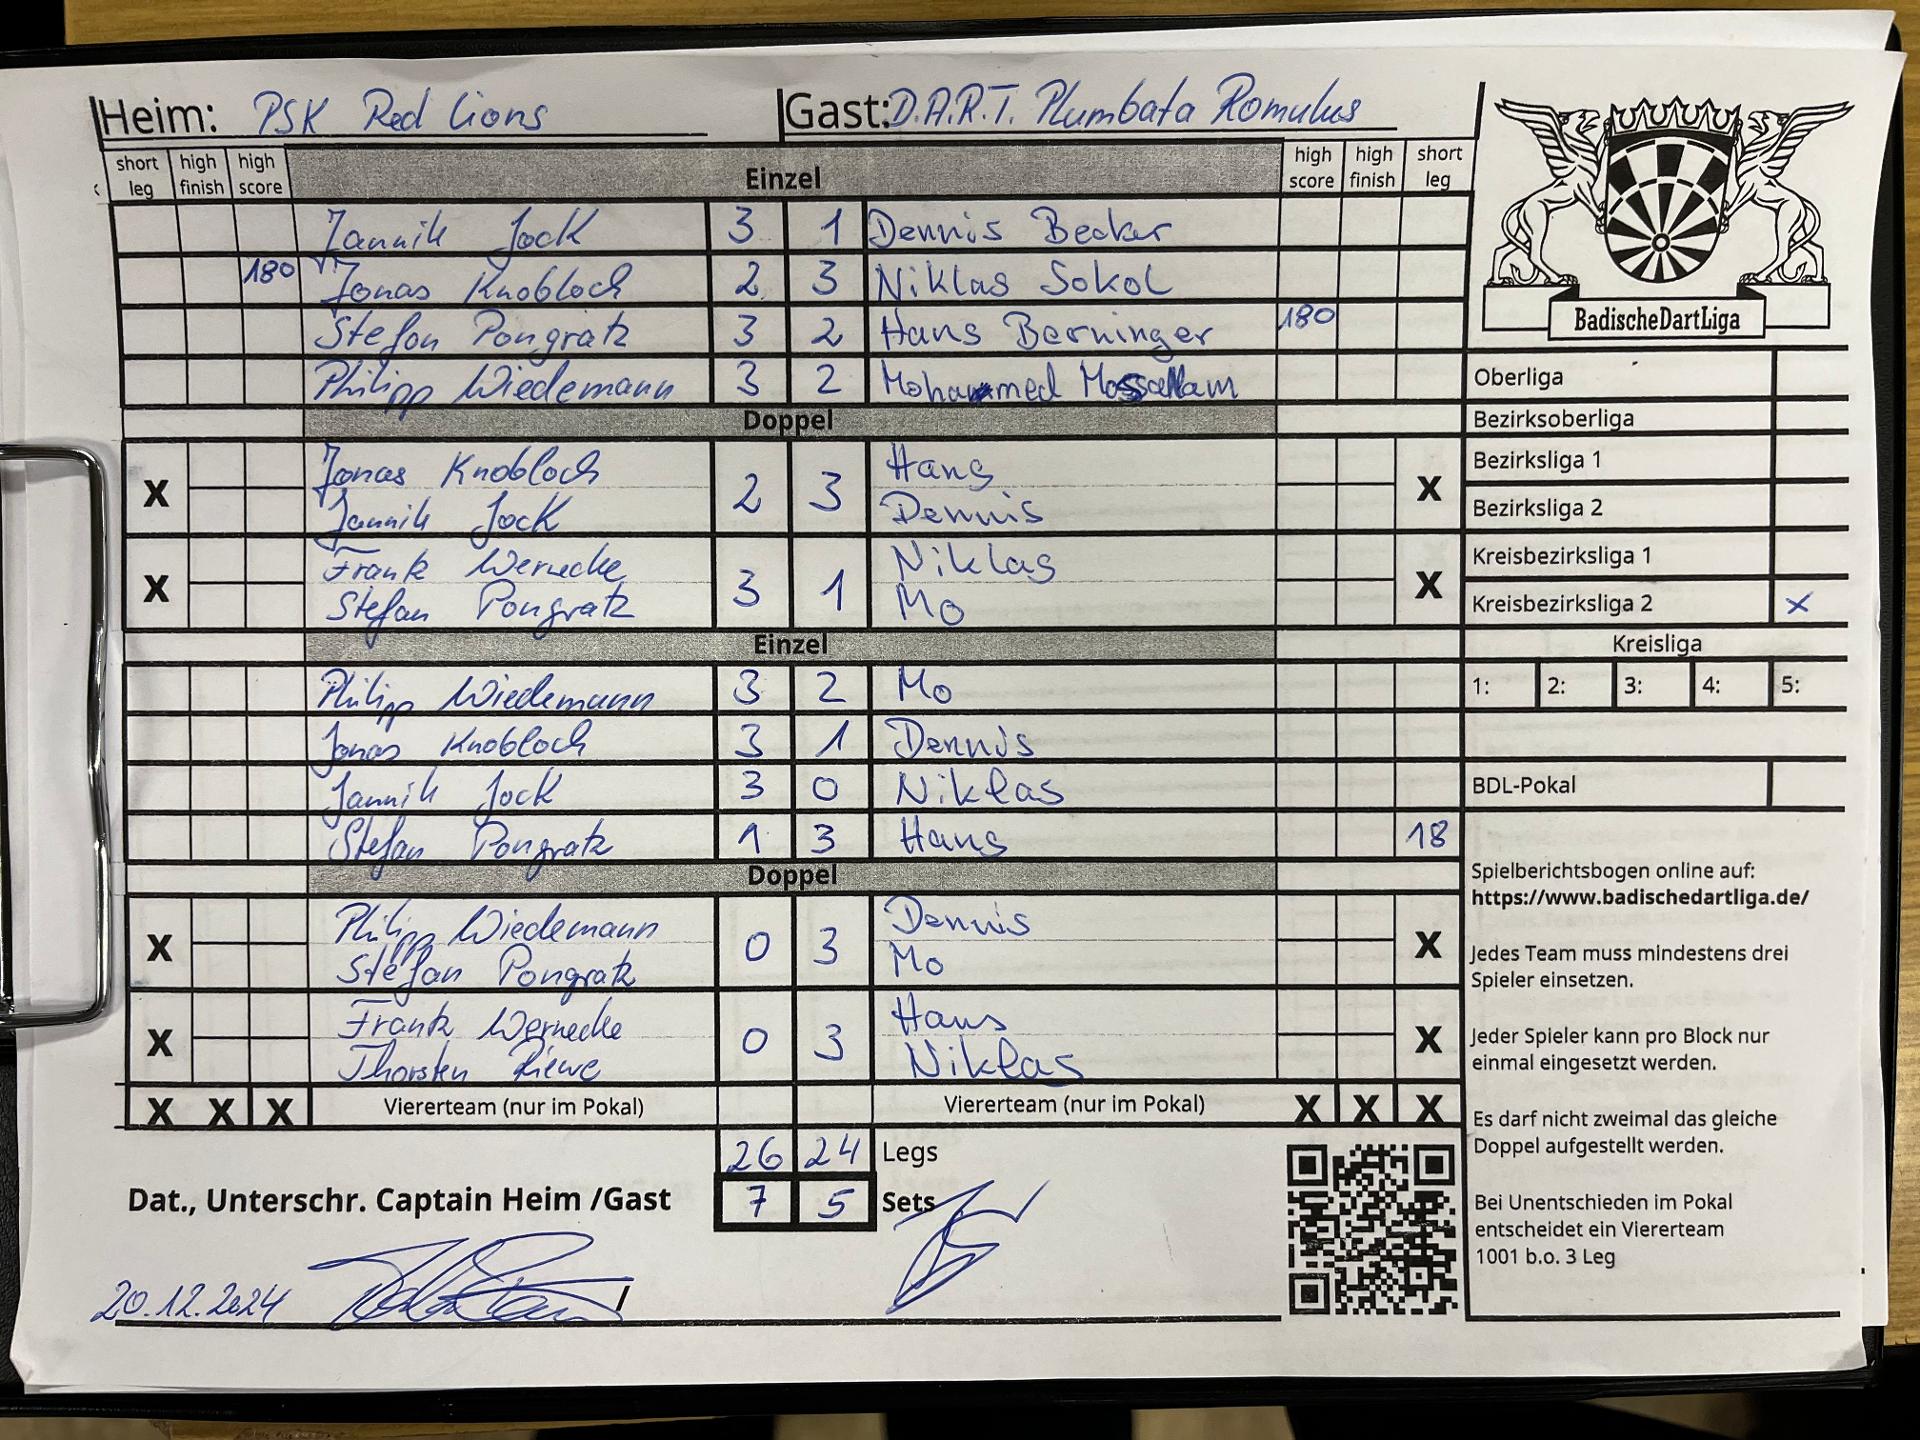 Heim: PSK Red Lions Gast: D.A.R.T. Plumbata Romulus
short leg high finish high score Einzel high score high finish short leg
Jannik Jock 3 1 Dennis Becker
180 Jonas Knobloch 2 3 Niklas Sokol
Stefan Pongratz 3 2 Hans Berninger 180
Philipp Wiedemann 3 2 Mohammed Mossallam
Doppel
X Jonas Knobloch 2 3 Hans X
Jannik Jock Dennis
X Frank Wernecke 3 1 Niklas X
Stefan Pongratz Mo
Einzel
Philipp Wiedemann 3 2 Mo
Jonas Knobloch 3 1 Dennis
Jannik Jock 3 0 Niklas
Stefan Pongratz 1 3 Hans 18
Doppel
X Philipp Wiedemann 0 3 Dennis X
Stefan Pongratz Mo
X Frank Wernecke 0 3 Hans X
Thorsten Riewe Niklas
X X X Viererteam (nur im Pokal) Viererteam (nur im Pokal) X X X
26 24 Legs
Dat., Unterschr. Captain Heim /Gast 7 5 Sets
20.12.2024 /
BadischeDartLiga
Oberliga
Bezirksoberliga
Bezirksliga 1
Bezirksliga 2
Kreisbezirksliga 1
Kreisbezirksliga 2 X
Kreisliga
1: 2: 3: 4: 5:
BDL-Pokal
Spielberichtsbogen online auf:
https://www.badischedartliga.de/
Jedes Team muss mindestens drei
Spieler einsetzen.
Jeder Spieler kann pro Block nur
einmal eingesetzt werden.
Es darf nicht zweimal das gleiche
Doppel aufgestellt werden.
Bei Unentschieden im Pokal
entscheidet ein Viererteam
1001 b.o. 3 Leg